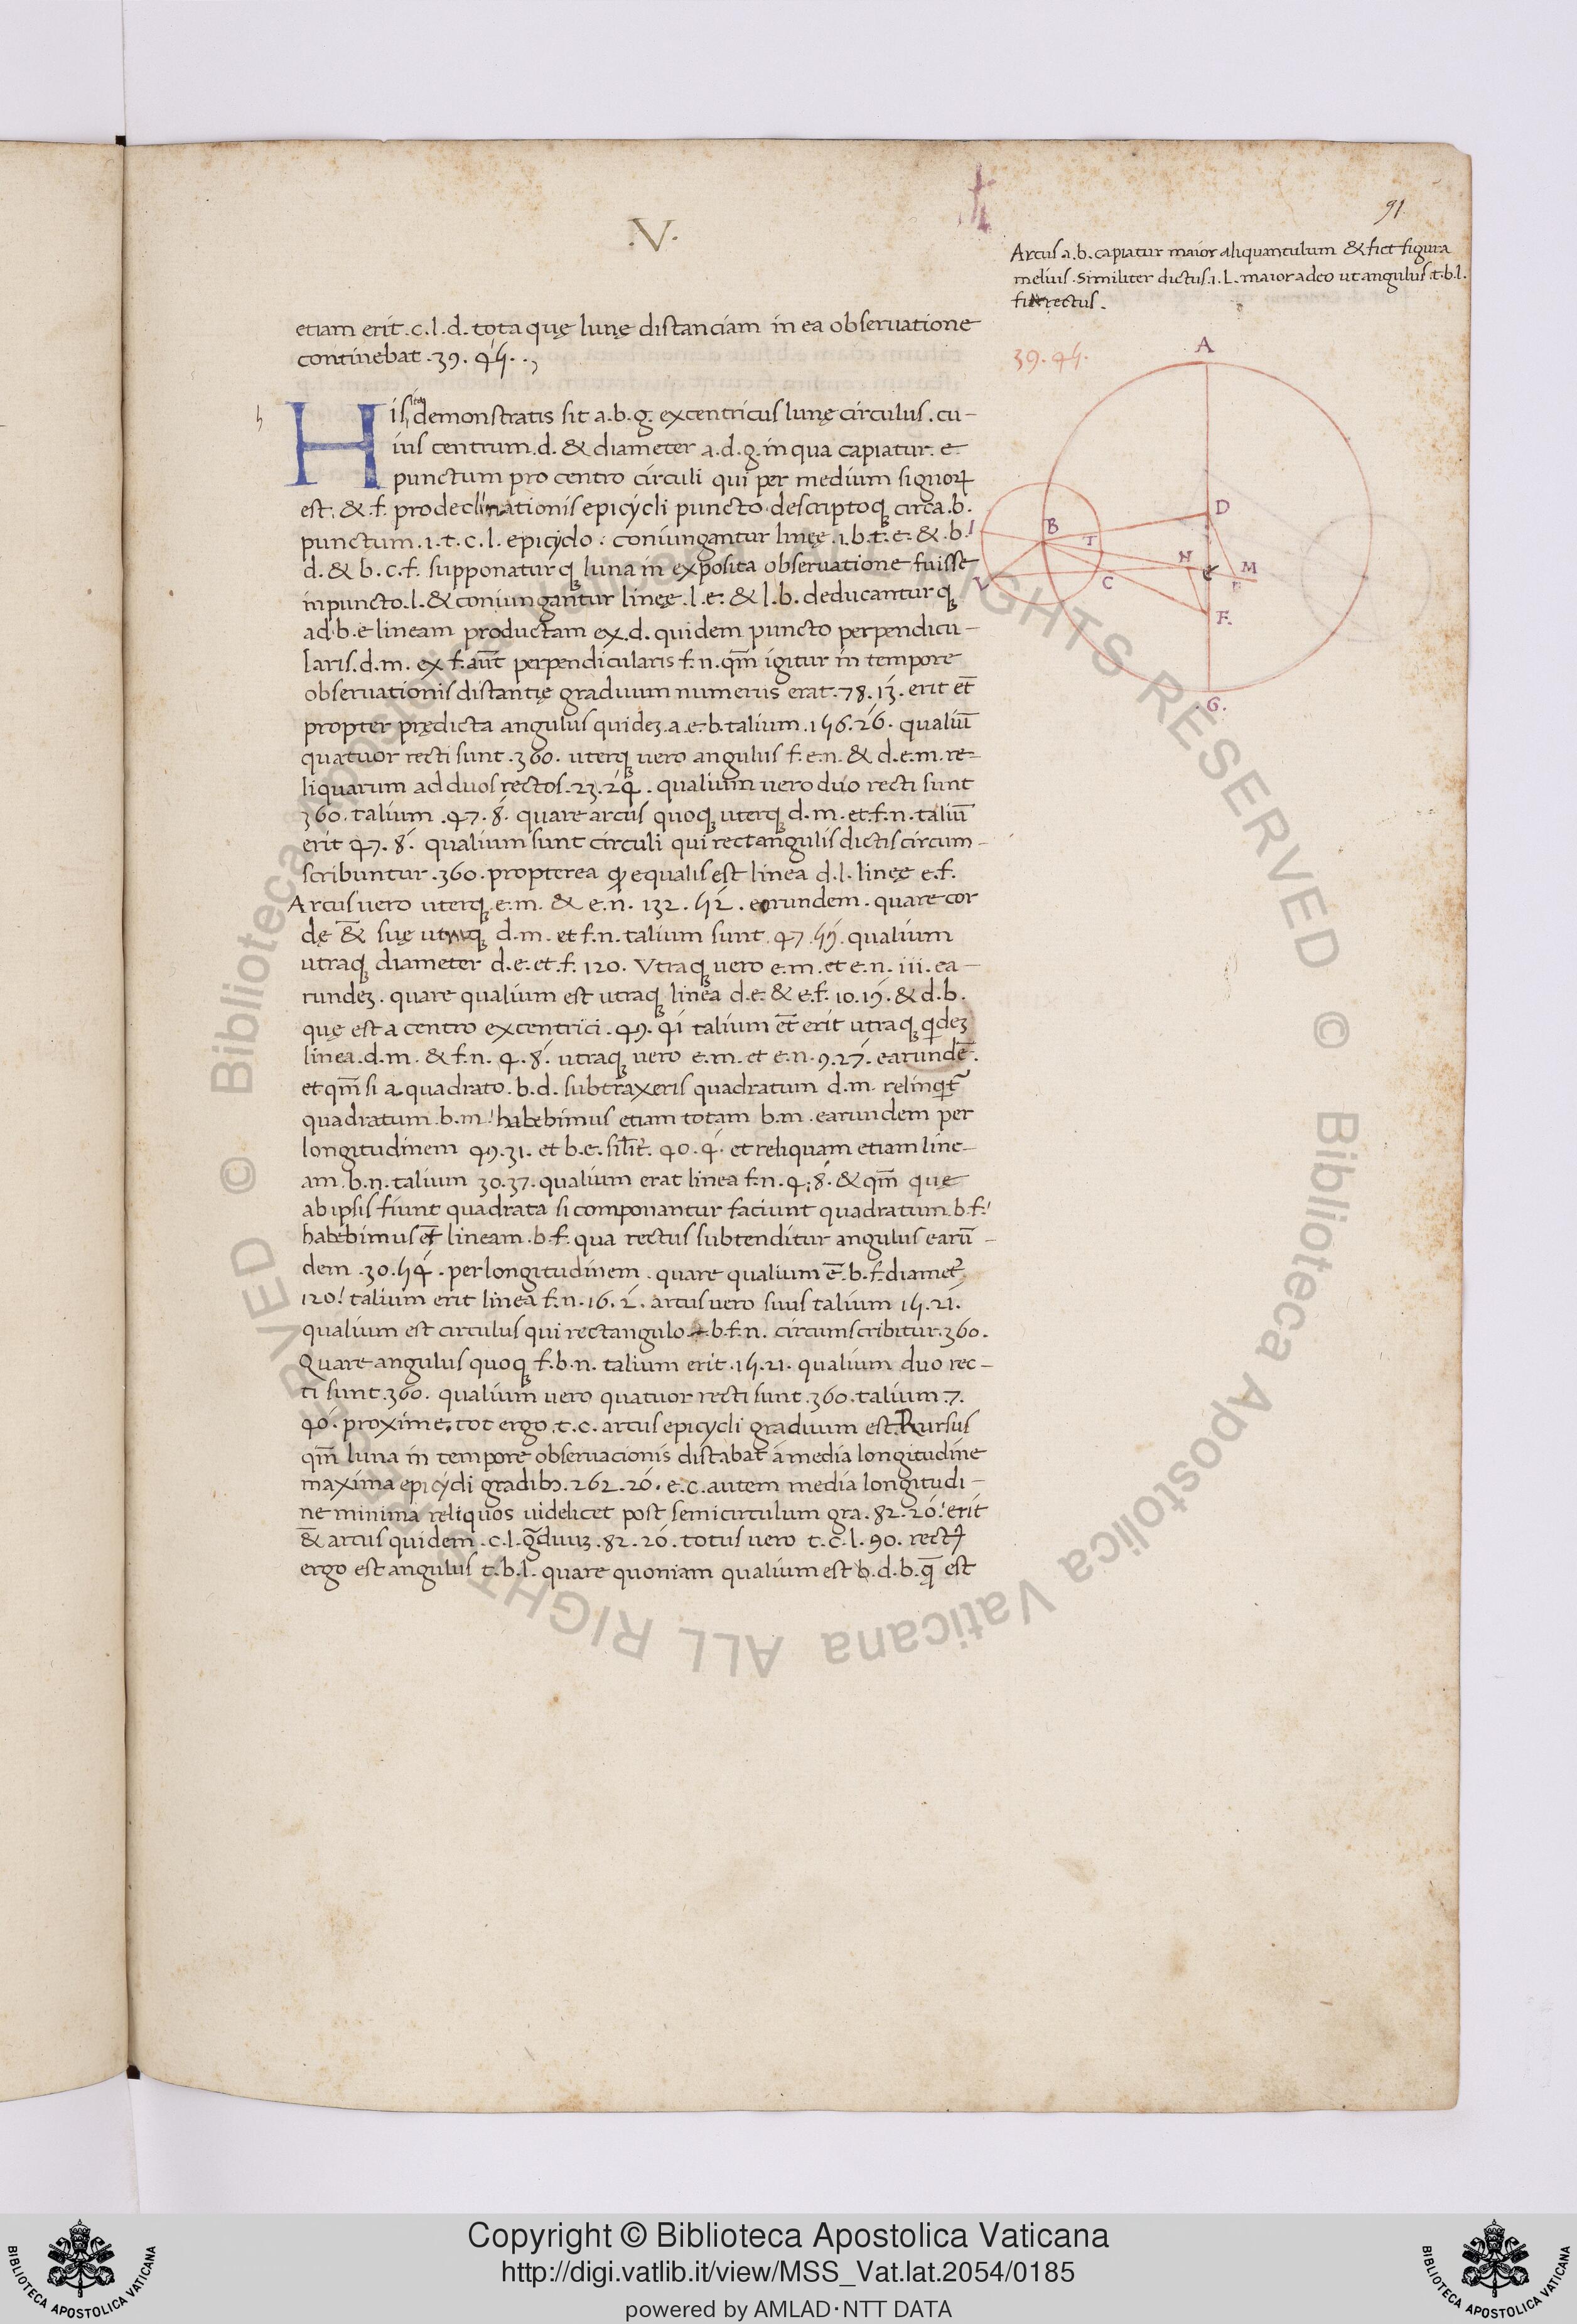 .V.
91
Arcus .a.b. capiatur maior aliquantulum & fiet figura
melius . Similiter dictus .i.L. maior adeo ut angulus .t.b.l.
rectus .
etiam erit .c.l.d. tota quę lunę distanciam in ea obseruatione
continebat .39. 45. .,
39. 45.
His demonstratis sit a.b.g. excentricus lunę circulus . cu-
ius centrum .d. & diameter a.d.g. in qua capiatur .e.
punctum pro centro circuli qui per medium signoꝝ
est. & .f. pro declinationis epicycli puncto. descriptoqꝫ circa .b.
punctum .i.t.c.l. epicyclo : coniungantur lineę .i.b.t.e. & .b.
d. & b.c.f. supponaturqꝫ luna in exposita obseruatione fuisse
in puncto .l. & coniungantur lineę .l.e. & l.b. deducanturqꝫ
ad .b.e lineam productam ex .d. quidem puncto perpendicu-
laris .d.m. ex f. aūt perpendicularis f.n. qm̄ igitur in tempore
obseruationis distantię graduum numerus erat .78.13. erit et̄
propter prędicta angulus quideꝫ .a.e.b. talium .156.26. qualiū
quatuor recti sunt .360. uterqꝫ vero angulus f.e.n. & d.e.m. re-
liquarum ad duos rectos .23.24. qualium uero duo recti sunt
360. talium .47.8. quare arcus quoqꝫ uterqꝫ d.m. et .f.n. taliū
erit 47.8. qualium sunt circuli qui rectangulis dictis circum-
scribuntur .360. propterea ꝙ equalis est linea d.l. lineę e.f.
Arcus vero uterqꝫ .e.m. & e.n. 132. 52. eorundem . quare cor
dę & suę d.m. et f.n. talium sunt .47.59. qualium
utraqꝫ diameter d.e. et .f. 120. Vtraqꝫ vero e.m. et e.n. iii. ea-
rundeꝫ . quare qualium est utraqꝫ linea d.e. & e.f. 10.19. & d.b.
quę est a centro excentrici .49. 41 talium et̄ erit utraqꝫ qͥdeꝫ
linea .d.m. & f.n. 4.8. utraqꝫ vero e.m. et e.n. 9.27. earundē.
et qm̄ si a quadrato .b.d. subtraxeris quadratum d.m. relinqͥt᷑
quadratum .b.m. habebimus etiam totam b.m. earundem per
longitudinem 49.31. et b.e. silit᷑. 40.4. et reliquam etiam line-
am .b.n. talium 30.37. qualium erat linea f.n. 4.8. & qm̄ que
ab ipsis fiunt quadrata si componantur faciunt quadratum .b.f.
habebimus et̄ lineam .b.f. qua rectus subtenditur angulus earū-
dem .30.54. per longitudinem . quare qualium ē .b.f. diamet᷑
120. talium erit linea f.n. 16.2. arcus vero suus talium 15.21.
qualium est circulus qui rectangulo b.f.n. circumscribitur .360.
Quare angulus quoqꝫ f.b.n. talium erit .15.21. qualium duo rec-
ti sunt .360. qualium vero quatuor recti sunt .360. talium .7.
40. proxime. tot ergo .t.c. arcus epicycli graduum est. Rursus
qm̄ luna in tempore obseruacionis distabat a media longitudine
maxima epicycli gradibꝫ .262.20. e.c. autem media longitudi-
ne minima reliquos uidelicet post semicirculum gra. 82.20. erit
& arcus quidem .c.l. g̃duuꝫ .82.20. totus vero t.c.l. 90. rectꝰ
ergo est angulus t.b.l. quare quoniam qualium est b.d.b. q̨̄ est
A
D
I
B
T
N
e
M
L
C
F.
.G.
© Biblioteca Apostolica Vaticana ALL RIGHTS RESERVED © Biblioteca Apostolica Vaticana ALL RIGHTS RESERVED
Copyright © Biblioteca Apostolica Vaticana
http://digi.vatlib.it/view/MSS_Vat.lat.2054/0185
powered by AMLAD·NTT DATA
BIBLIOTECA APOSTOLICA VATICANA
BIBLIOTECA APOSTOLICA VATICANA